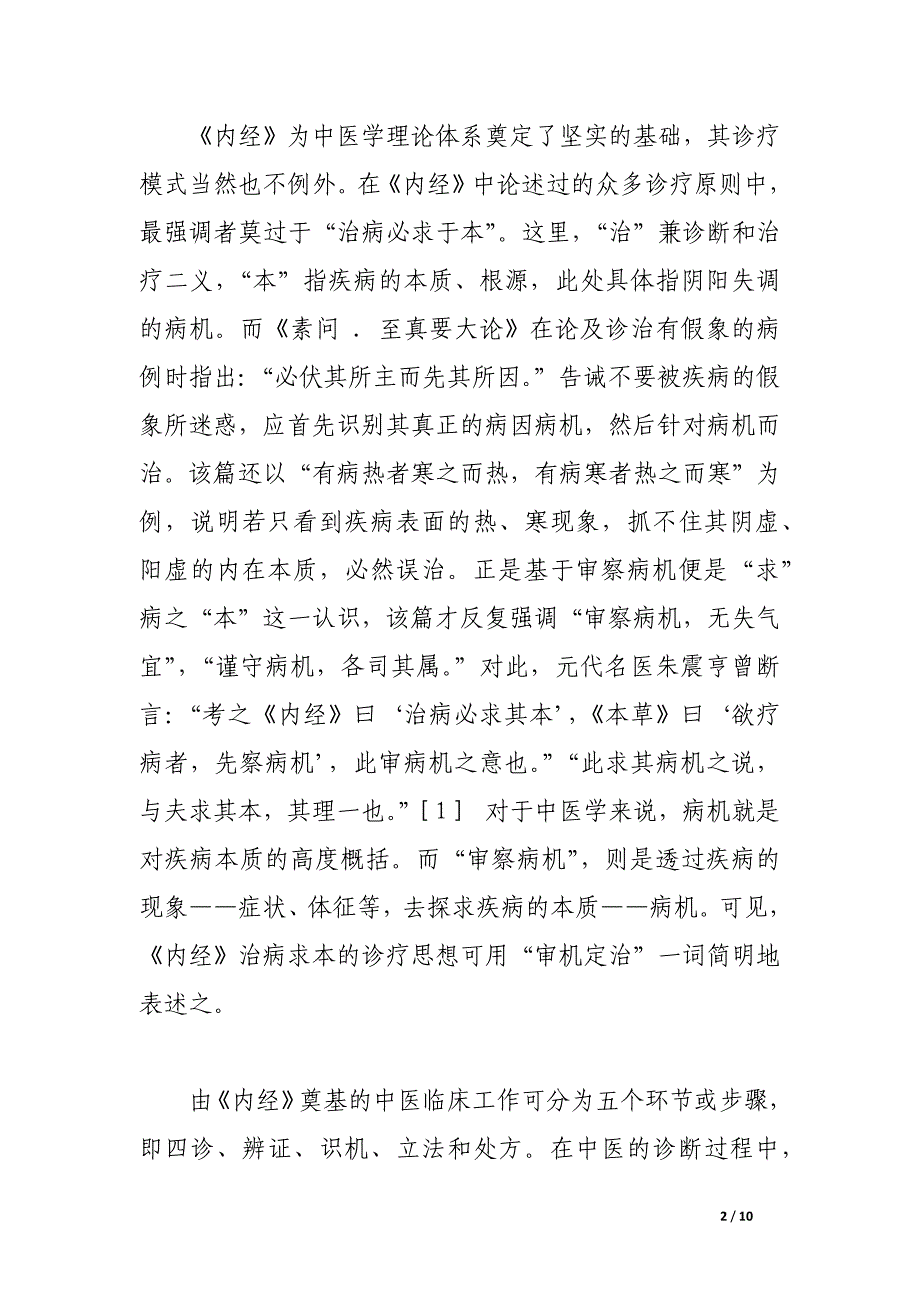 《内经》为中医学理论体系奠定了坚实的基础，其诊疗
模式当然也不例外。在《内经》中论述过的众多诊疗原则中，
最强调者莫过于“治病必求于本”。这里，“治”兼诊断和治
疗二义，“本”指疾病的本质、根源，此处具体指阴阳失调
的病机。而《素问 ．至真要大论》在论及诊治有假象的病
例时指出：“必伏其所主而先其所因。”告诫不要被疾病的假
象所迷惑，应首先识别其真正的病因病机，然后针对病机而
治。该篇还以“有病热者寒之而热，有病寒者热之而寒”为
例，说明若只看到疾病表面的热、寒现象，抓不住其阴虚、
阳虚的内在本质，必然误治。正是基于审察病机便是“求”
病之“本”这一认识，该篇才反复强调“审察病机，无失气
宜”，“谨守病机，各司其属。”对此，元代名医朱震亨曾断
言：“考之《内经》曰‘治病必求其本’，《本草》曰‘欲疗
病者，先察病机’，此审病机之意也。”“此求其病机之说，
与夫求其本，其理一也。”[1] 对于中医学来说，病机就是
对疾病本质的高度概括。而“审察病机”，则是透过疾病的
现象——症状、体征等，去探求疾病的本质——病机。可见，
《内经》治病求本的诊疗思想可用“审机定治”一词简明地
表述之。
由《内经》奠基的中医临床工作可分为五个环节或步骤，
即四诊、辨证、识机、立法和处方。在中医的诊断过程中，
2 / 10